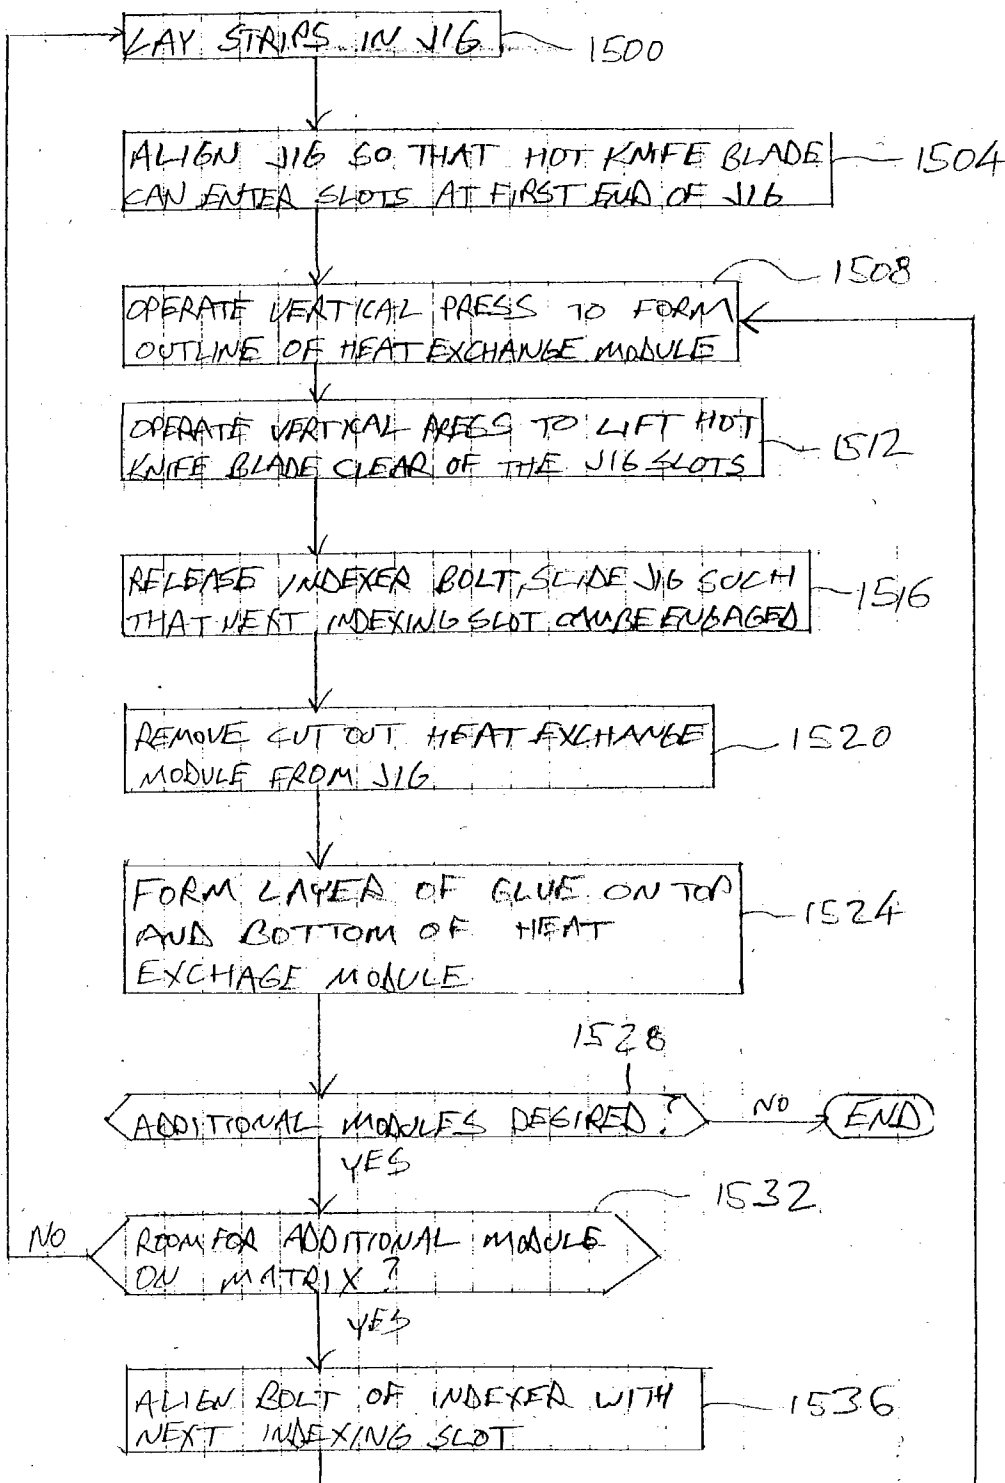 LAY STRIPS IN JIG
1500
ALIGN JIG SO THAT HOT KNIFE BLADE
CAN ENTER SLOTS AT FIRST END OF JIG
1504
1508
OPERATE VERTICAL PRESS TO FORM
OUTLINE OF HEAT EXCHANGE MODULE
OPERATE VERTICAL PRESS TO LIFT HOT
KNIFE BLADE CLEAR OF THE JIG SLOTS
1512
RELEASE INDEXER BOLT, SLIDE JIG SUCH
THAT NEXT INDEXING SLOT CAN BE ENGAGED
1516
REMOVE CUT OUT HEAT EXCHANGE
MODULE FROM JIG
1520
FORM LAYER OF GLUE ON TOP
AND BOTTOM OF HEAT
EXCHAGE MODULE
1524
1528
ADDITIONAL MODULES DESIRED?
NO
END
YES
1532
NO
ROOM FOR ADDITIONAL MODULE
ON MATRIX?
YES
ALIGN BOLT OF INDEXER WITH
NEXT INDEXING SLOT
1536